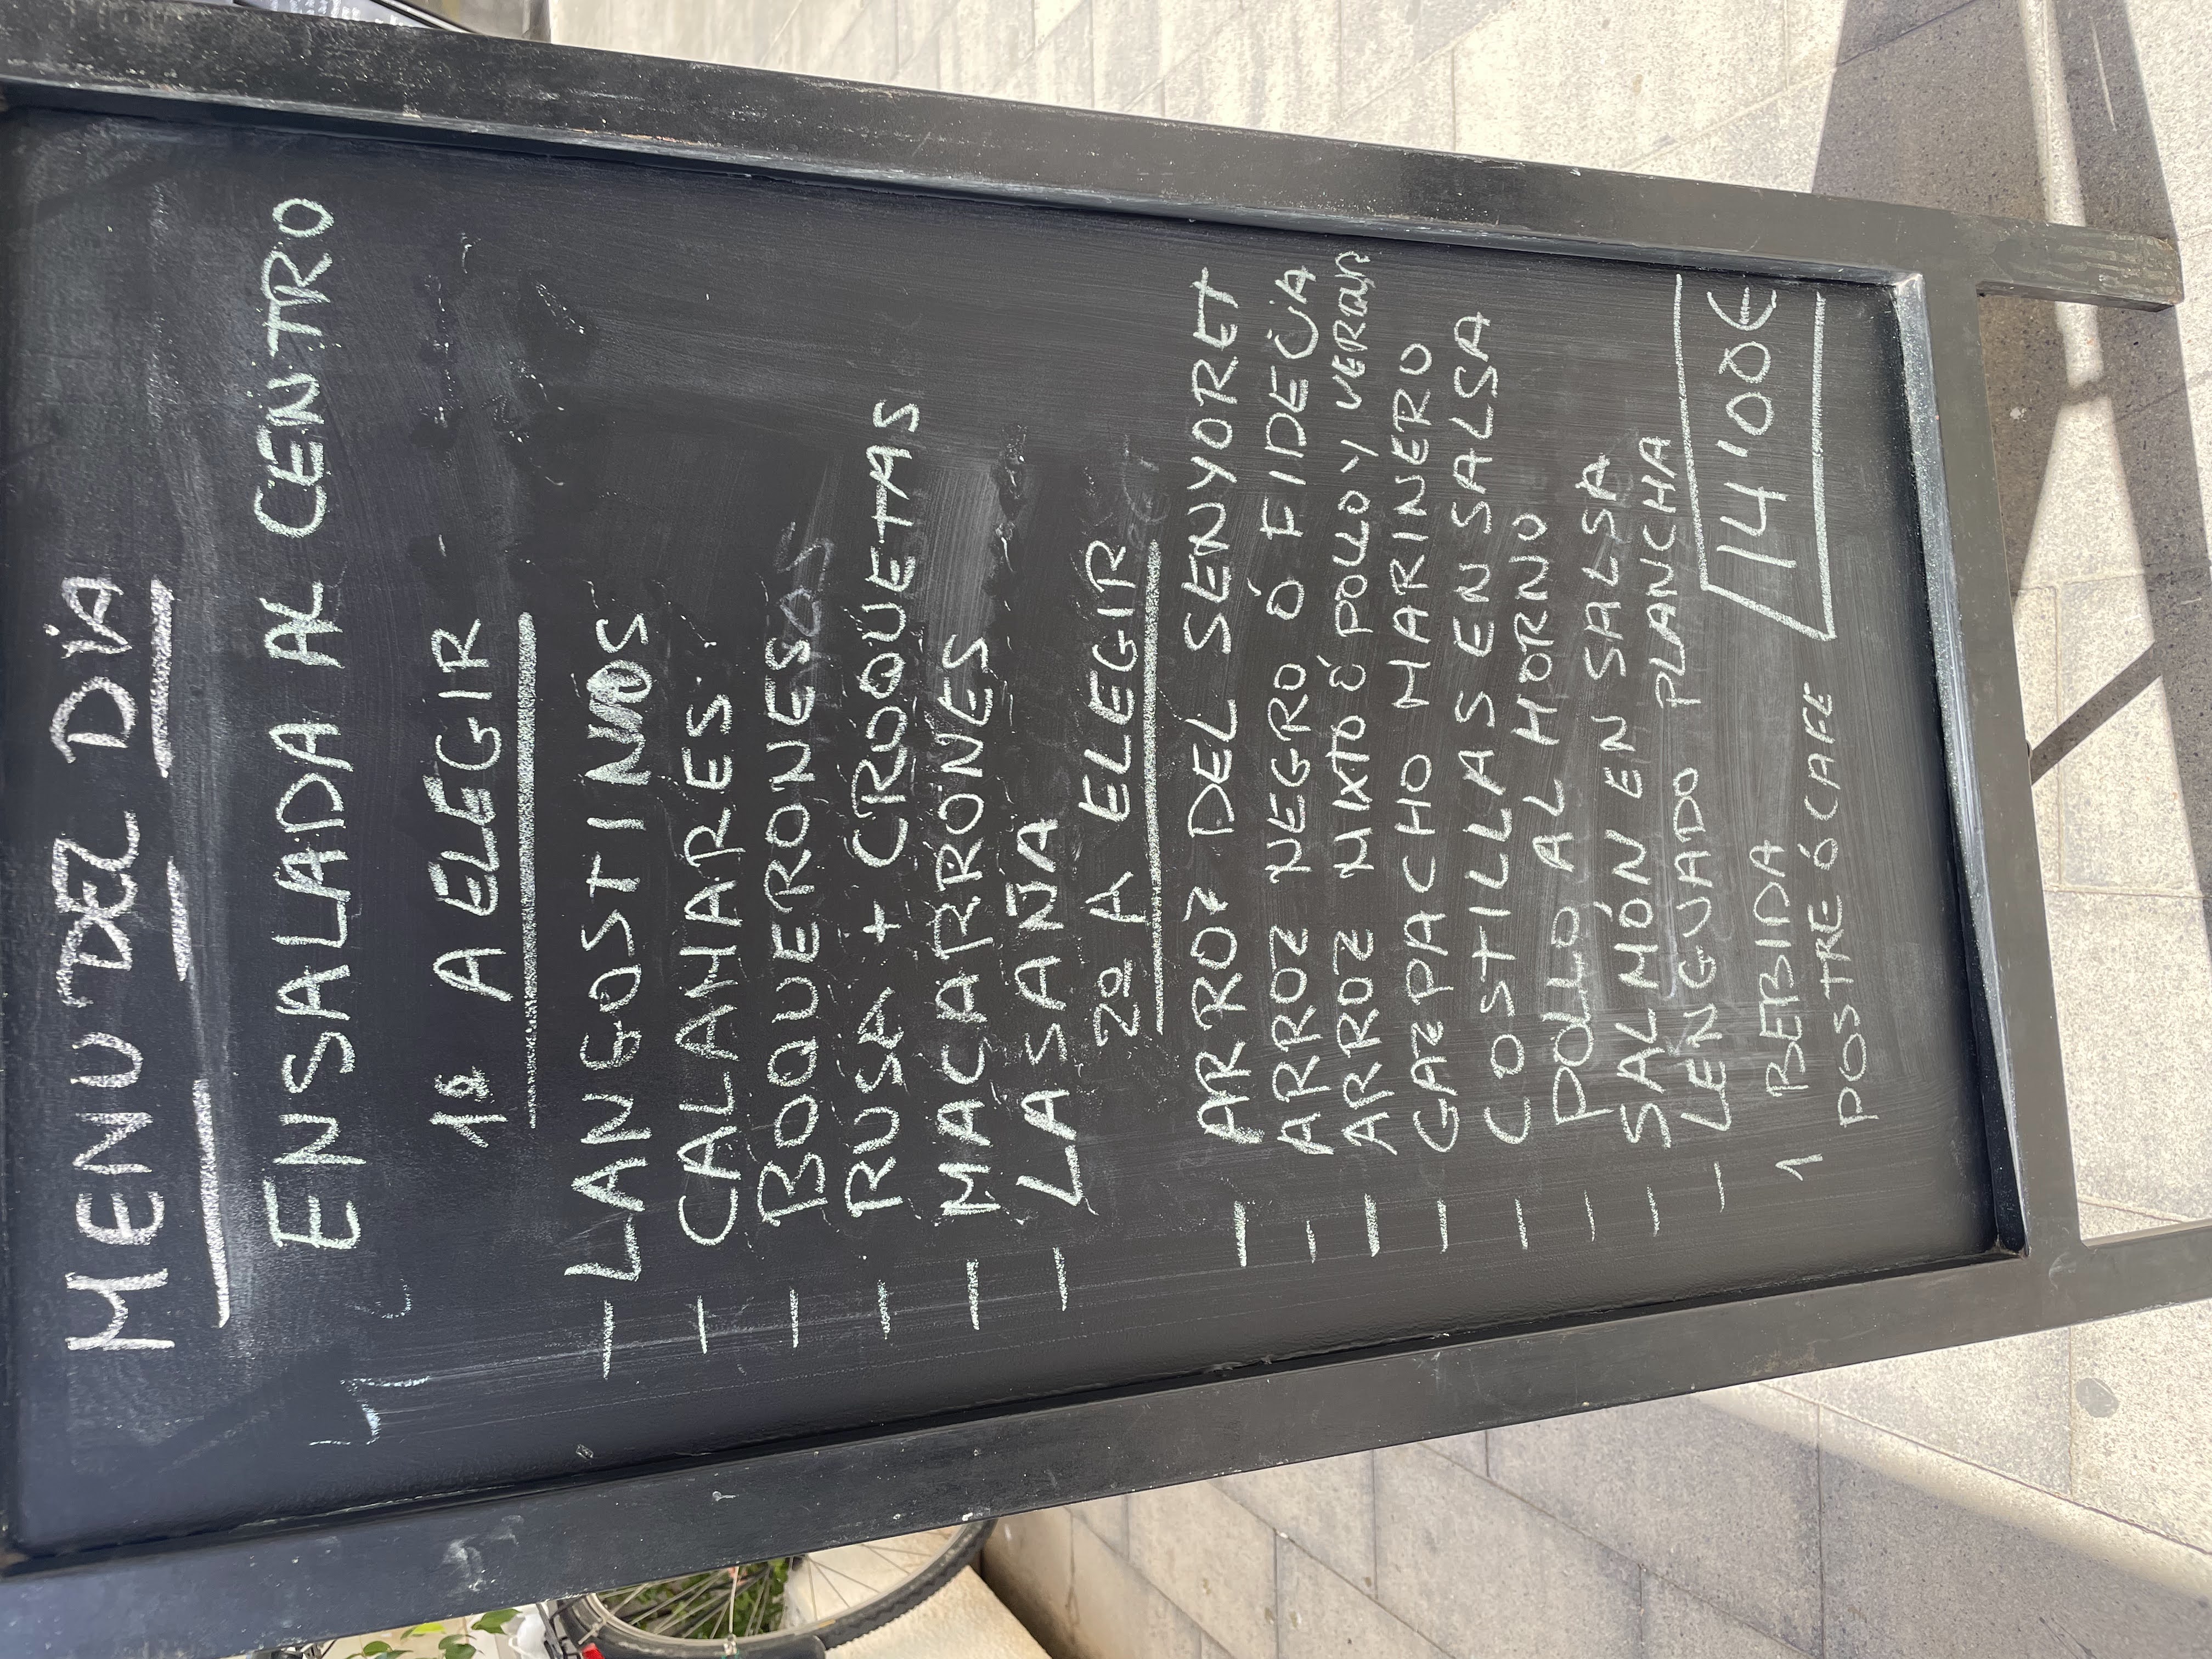 MENU DEL DÍA
ENSALADA AL CENTRO
1º A ELEGIR
- LANGOSTINOS
- CALAMARES
- BOQUERONES
- RUSA + CROQUETAS
- MACARRONES
- LASAÑA
2º A ELEGIR
- ARROZ DEL SENYORET
- ARROZ NEGRO Ó
- ARROZ MIXTO Ó POLLO Y
- GAZPACHO MARINERO
- COSTILLAS EN SALSA
- POLLO AL HORNO
- SALMÓN EN SALSA
- LENGUADO PLANCHA
1 BEBIDA
POSTRE Ó CAFE
14'00€